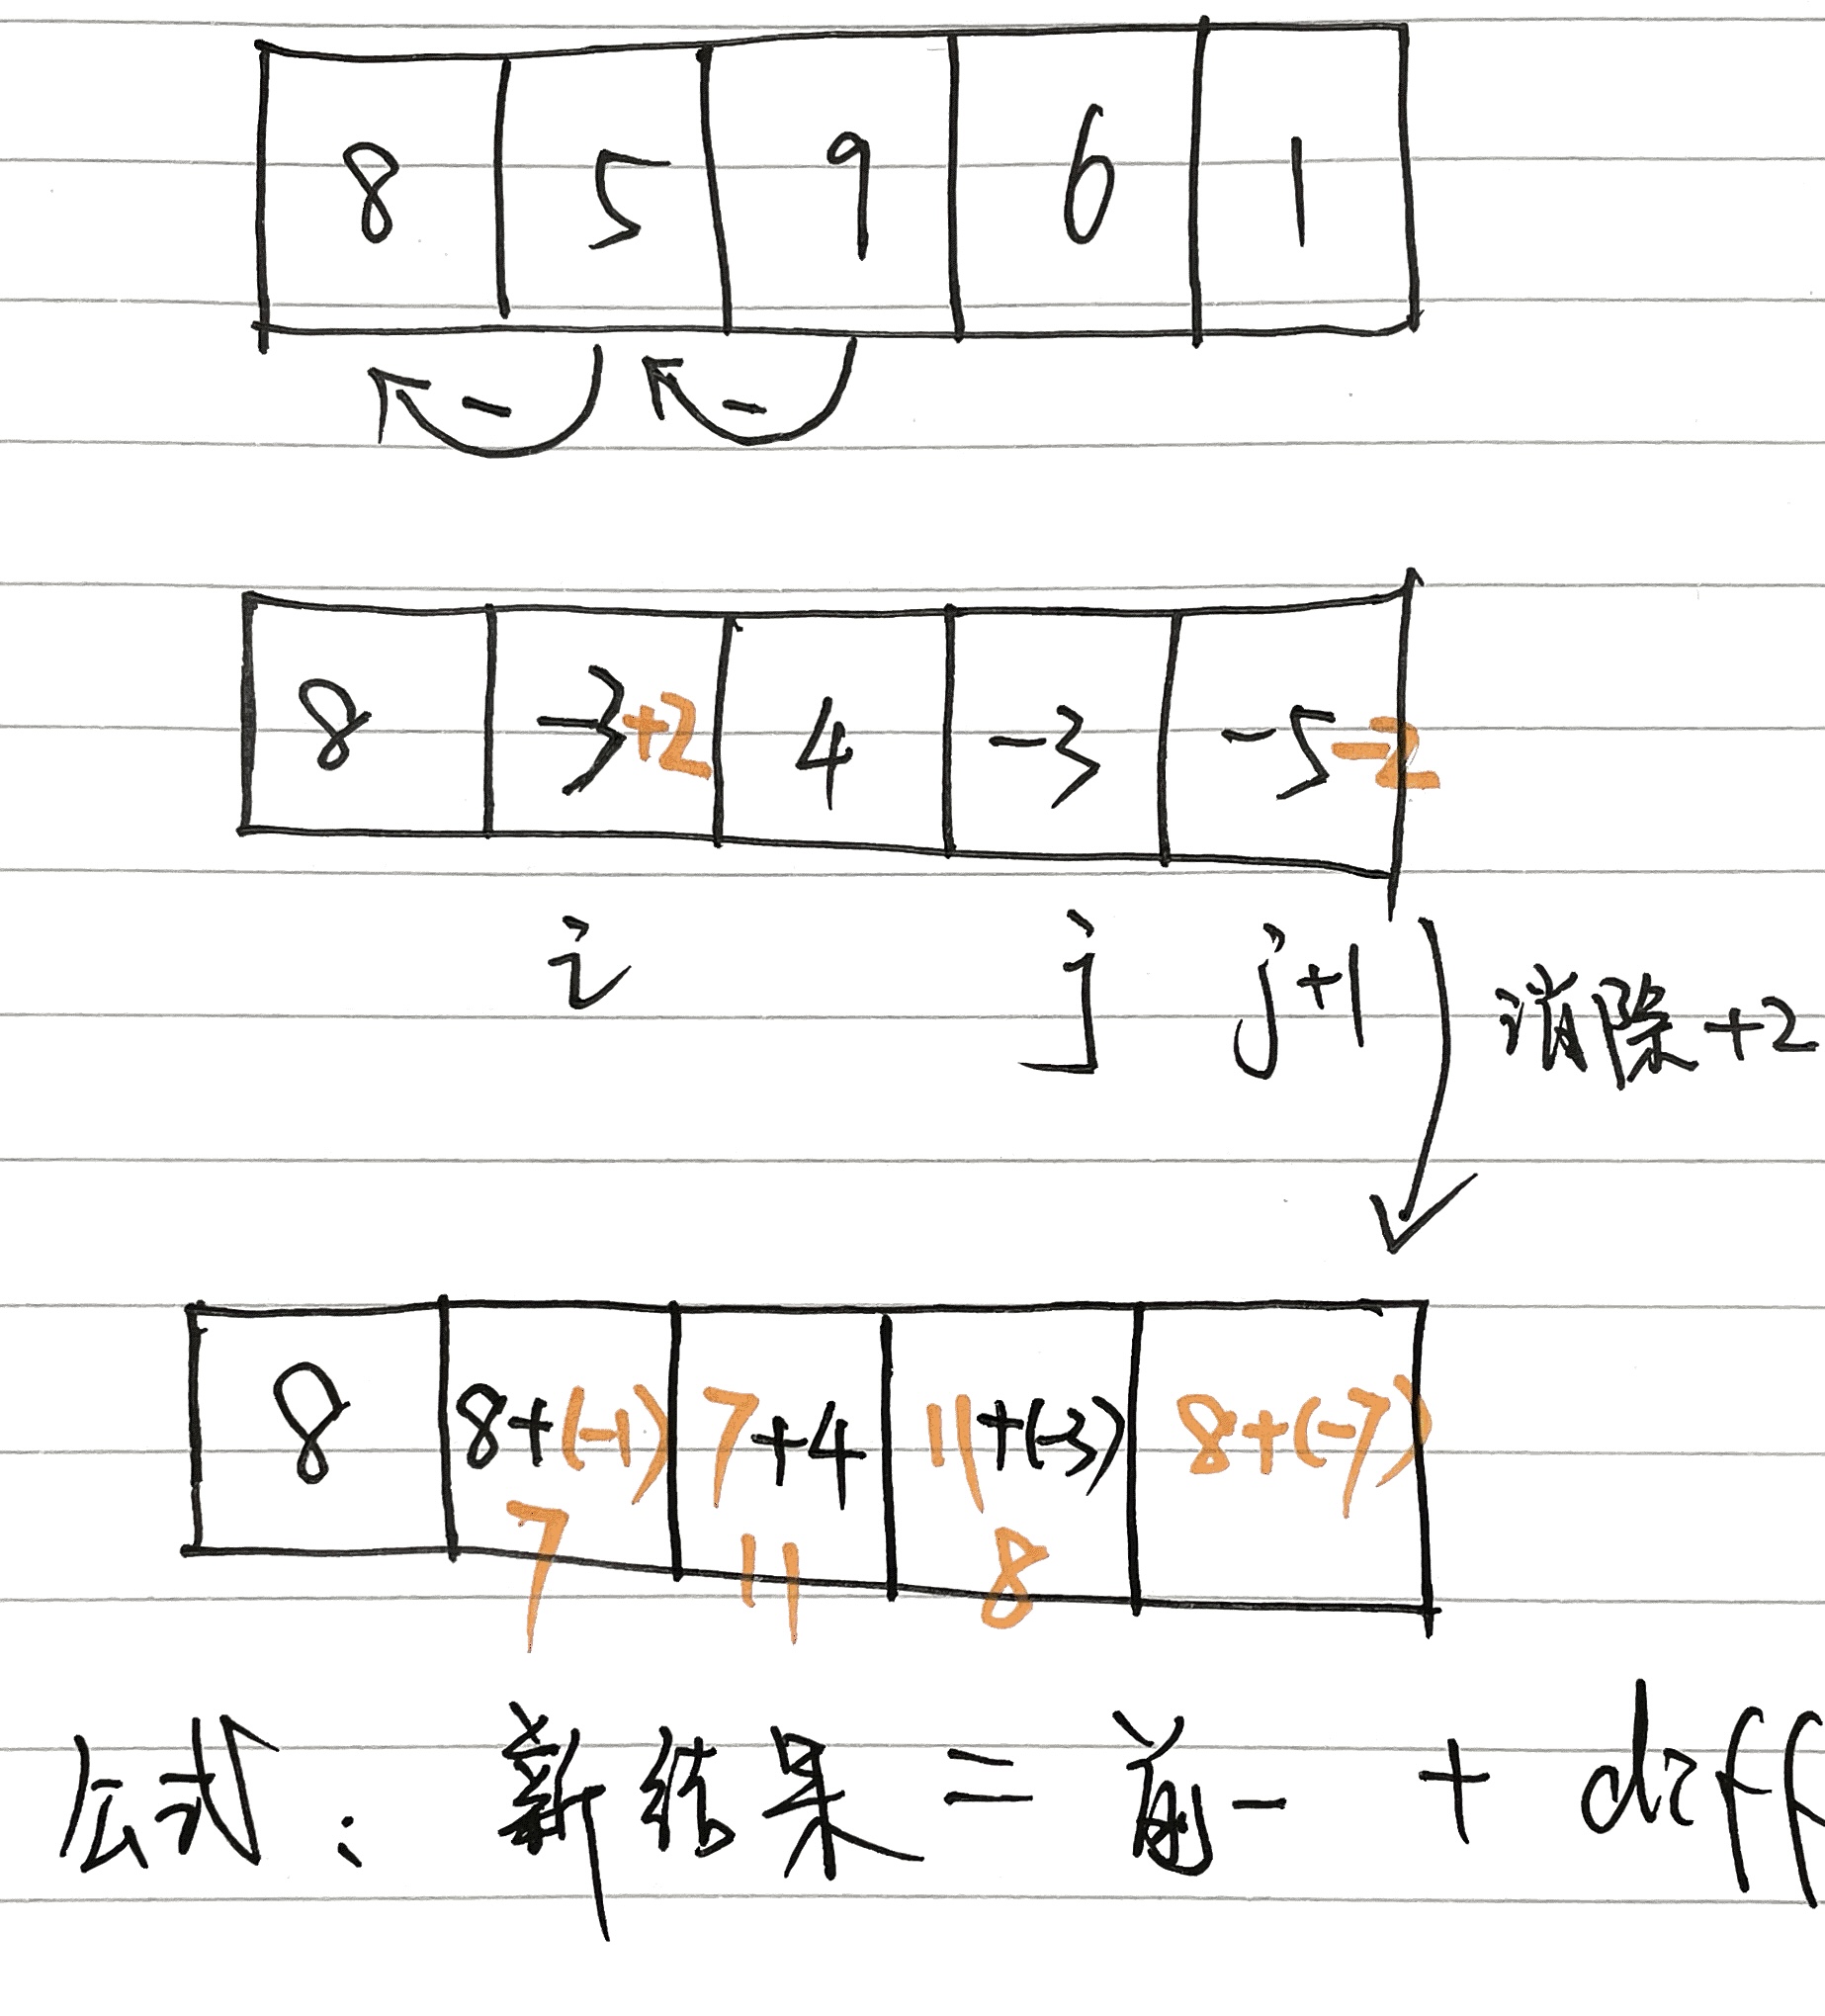 8 5 9 6 1
- -
8 -3+2 4 -3 -5-2
i j j+1
消除+2
8 8+(-1) 7+4 11+(-3) 8+(-7)
7 11 8
公式: 新结果 = 前一 + diff